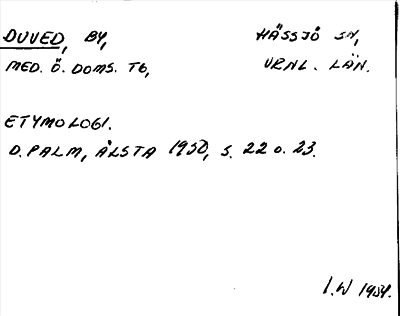 DUVED, BY, HÄSSJÖ SN,
MED. Ö. DOMS. TG, VRNL. LÄN.
ETYMOLOGI.
D. PALM, ÅLSTA 1950, S. 22 O. 23.
I.W 1954.